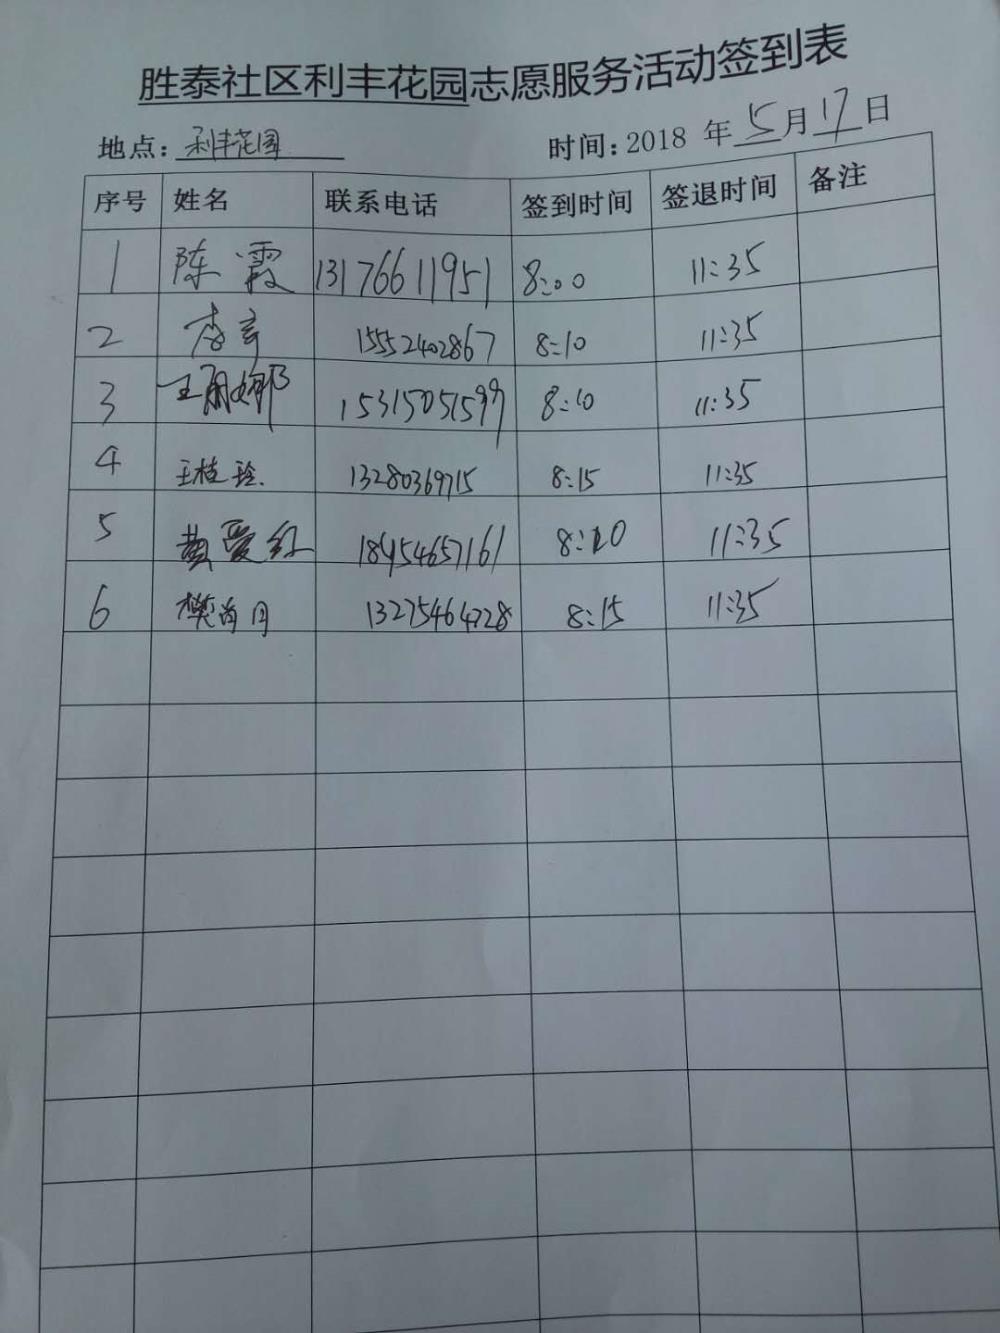 胜泰社区利丰花园志愿服务活动签到表
地点：利丰花园 时间：2018 年 5 月 17 日
序号 姓名 联系电话 签到时间 签退时间 备注
1 陈霞 13176611951 8:00 11:35
2 15552402867 8:10 11:35
3 王丽娜 15315051599 8:10 11:35
4 王桂玲 13280369715 8:15 11:35
5 黄爱红 18454657161 8:20 11:35
6 樊海月 13275464728 8:15 11:35